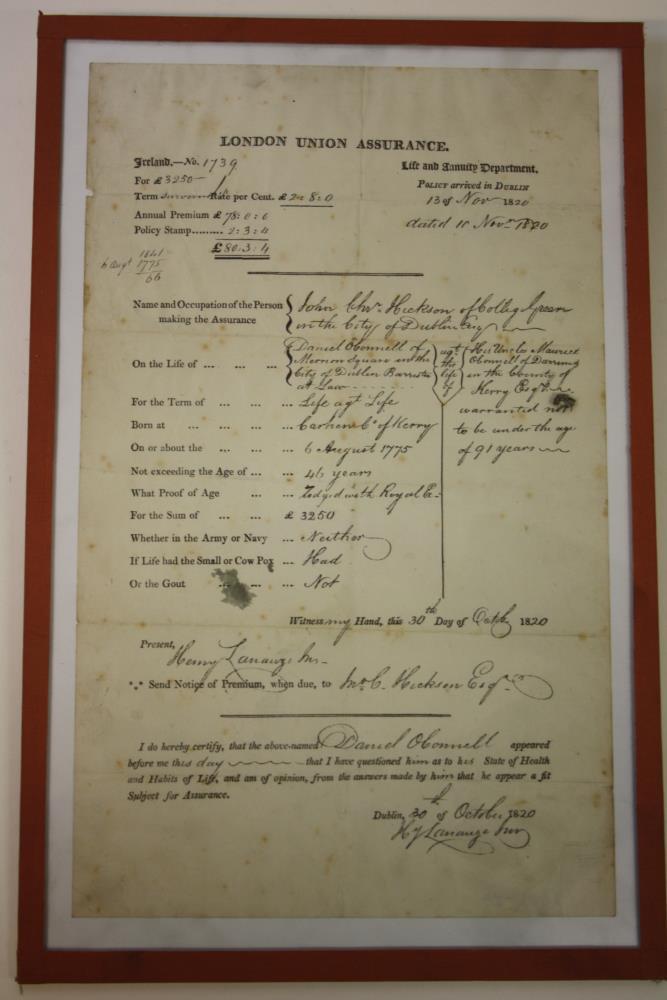 LONDON UNION ASSURANCE.
Ireland.—No. 1739
For £3250
Term Rate per Cent. £2:8:0
Annual Premium £78:0:0
Policy Stamp......... 2:3:4
£80:3:4
Life and Annuity Department.
POLICY arrived in DUBLIN
13 of Nov 1820
dated 11 Novr 1820
1821
6 Augt 1775
Name and Occupation of the Person
making the Assurance
John Chrs. Hickson of College Green
in the City of Dublin Esq
On the Life of ... ... ...
Daniel OConnell of
Merrion Square in the
City of Dublin Barrister
at Law
agt
the
life
of
His Uncle Maurice
OConnell of Darrinane
in the County of
Kerry Esqr.
warranted not
to be under the age
of 91 years
For the Term of ... ... ... Life agt Life
Born at ... ... ... Carhen Co. of Kerry
On or about the ... ... ... 6 August 1775
Not exceeding the Age of ... ... 46 years
What Proof of Age ... ... Lodged with Royal Ex-
For the Sum of ... ... £ 3250
Whether in the Army or Navy ... Neither
If Life had the Small or Cow Pox ... Had
Or the Gout ... ... ... Not
Witness my Hand, this 30th Day of Octbr 1820
Present,
Henry Lanauze Jnr.
*** Send Notice of Premium, when due, to Mr. C. Hickson Esqre.
I do hereby certify, that the above-named Daniel OConnell appeared
before me this day that I have questioned him as to his State of Health
and Habits of Life, and am of opinion, from the answers made by him that he appear a fit
Subject for Assurance.
Dublin, 30th of October 1820
Hy Lanauze Jnr